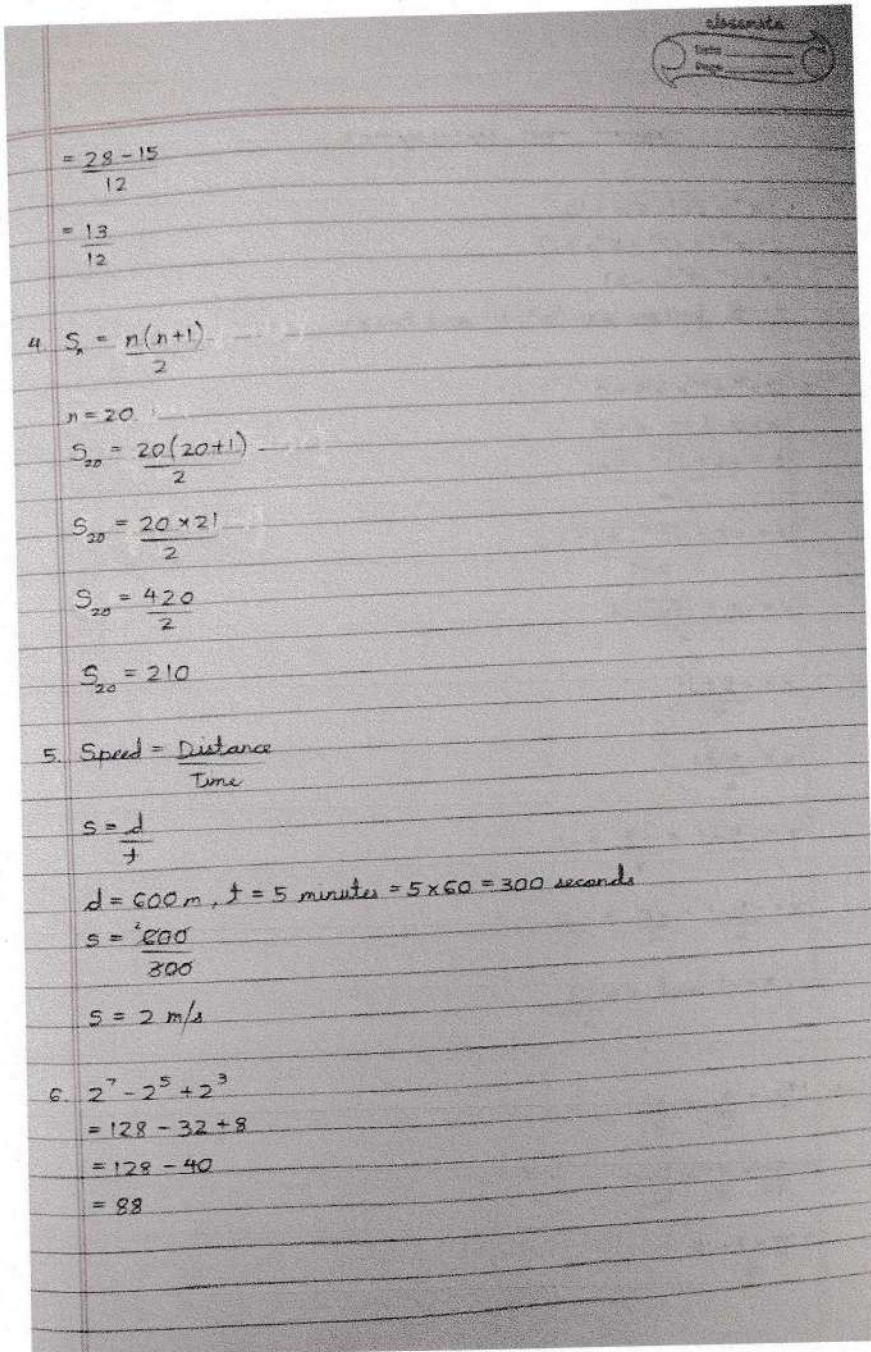 classmate
Date
Page
= 28 - 15
12
= 13
12
4. Sₙ = n(n+1)
2
n = 20
S₂₀ = 20(20+1)
2
S₂₀ = 20 × 21
2
S₂₀ = 420
2
S₂₀ = 210
5. Speed = Distance
Time
s = d
t
d = 600 m, t = 5 minutes = 5×60 = 300 seconds
s = ²600
300
s = 2 m/s
6. 2⁷ - 2⁵ + 2³
= 128 - 32 + 8
= 128 - 40
= 88